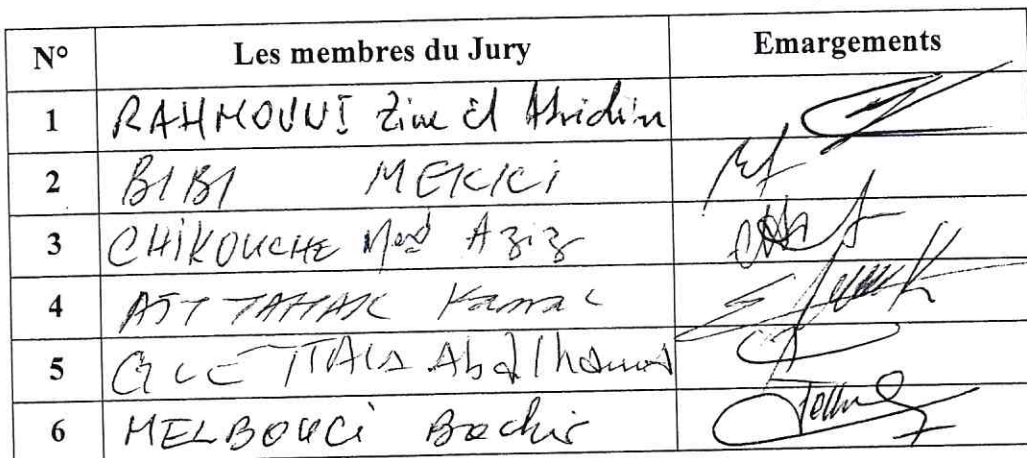 N° Les membres du Jury Emargements
1 RAHMOUNI Zine El Abidin
2 BIBI MEKKCi
3 CHIKOUCHE Med Aziz
4 AIT TAHAR Kamal
5 Abdelhamid
6 MELBOUCi Bachir